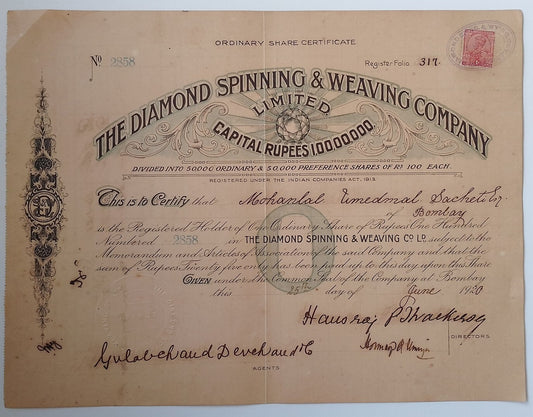 ORDINARY SHARE CERTIFICATE
No 2858
Register Folio 317
THE DIAMOND SPINNING & WEAVING COMPANY
LIMITED.
CAPITAL RUPEES 10000000.
DIVIDED INTO 50000 ORDINARY & 50,000 PREFERENCE SHARES OF Rs 100 EACH.
REGISTERED UNDER THE INDIAN COMPANIES ACT, 1913.
This is to Certify that Mohanlal Umedmal Sacheti Esq.
of Bombay
is the Registered Holder of One Ordinary Share of Rupees One Hundred
Numbered 2858 in THE DIAMOND SPINNING & WEAVING Co LD. subject to the
Memorandum and Articles of Association of the said Company and that the
sum of Rupees Twenty five only has been paid up to this day upon this Share
GIVEN under the Common Seal of the Company at Bombay
this 25th day of June 1920
Hansraj P Thackersey
DIRECTORS
Gulabchand Devchand & Co
AGENTS